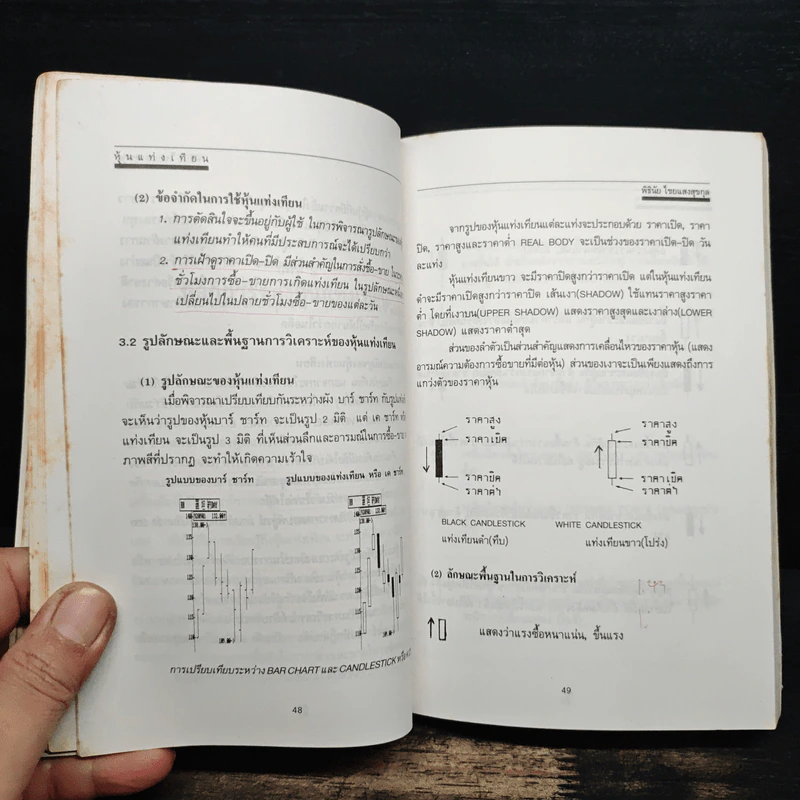 หุ้นแท่งเทียน
(2) ข้อจำกัดในการใช้หุ้นแท่งเทียน
1. การตัดสินใจจะขึ้นอยู่กับผู้ใช้ ในการพิจารณารูปลักษณะของ
แท่งเทียนทำให้คนที่มีประสบการณ์จะได้เปรียบกว่า
2. การเฝ้าดูราคาเปิด-ปิด มีส่วนสำคัญในการสั่งซื้อ-ขาย
ชั่วโมงการซื้อ-ขายการเกิดแท่งเทียน ในรูปลักษณะหนึ่ง
เปลี่ยนไปในปลายชั่วโมงซื้อ-ขายของแต่ละวัน
3.2 รูปลักษณะและพื้นฐานการวิเคราะห์ของหุ้นแท่งเทียน
(1) รูปลักษณะของหุ้นแท่งเทียน
เมื่อพิจารณาเปรียบเทียบกันระหว่างผัง บาร์ ชาร์ท กับรูปแท่ง
จะเห็นว่ารูปของหุ้นบาร์ ชาร์ท จะเป็นรูป 2 มิติ แต่ เค ชาร์ท
แท่งเทียน จะเป็นรูป 3 มิติ ที่เห็นส่วนลึกและอารมณ์ในการซื้อ-ขาย
ภาพสีที่ปรากฏ จะทำให้เกิดความเร้าใจ
รูปแบบของบาร์ ชาร์ท รูปแบบของแท่งเทียน หรือ เค ชาร์ท
การเปรียบเทียบระหว่าง BAR CHART และ CANDLESTICK หรือ
48
พิชินัย ไชยแสงสุขกุล
จากรูปของหุ้นแท่งเทียนแต่ละแท่งจะประกอบด้วย ราคาเปิด, ราคา
ปิด, ราคาสูงและราคาต่ำ REAL BODY จะเป็นช่วงของราคาเปิด-ปิด วัน
ละแท่ง
หุ้นแท่งเทียนขาว จะมีราคาปิดสูงกว่าราคาเปิด แต่ในหุ้นแท่งเทียน
ดำจะมีราคาเปิดสูงกว่าราคาปิด เส้นเงา(SHADOW) ใช้แทนราคาสูงราคา
ต่ำ โดยที่เงาบน(UPPER SHADOW) แสดงราคาสูงสุดและเงาล่าง(LOWER
SHADOW) แสดงราคาต่ำสุด
ส่วนของลำตัวเป็นส่วนสำคัญแสดงการเคลื่อนไหวของราคาหุ้น (แสดง
อารมณ์ความต้องการซื้อขายที่มีต่อหุ้น) ส่วนของเงาจะเป็นเพียงแสดงถึงการ
แกว่งตัวของราคาหุ้น
ราคาสูง ราคาสูง
ราคาเปิด ราคาปิด
ราคาปิด ราคาเปิด
ราคาต่ำ ราคาต่ำ
BLACK CANDLESTICK WHITE CANDLESTICK
แท่งเทียนดำ(ทึบ) แท่งเทียนขาว(โปร่ง)
(2) ลักษณะพื้นฐานในการวิเคราะห์
แสดงว่าแรงซื้อหนาแน่น, ขึ้นแรง
49